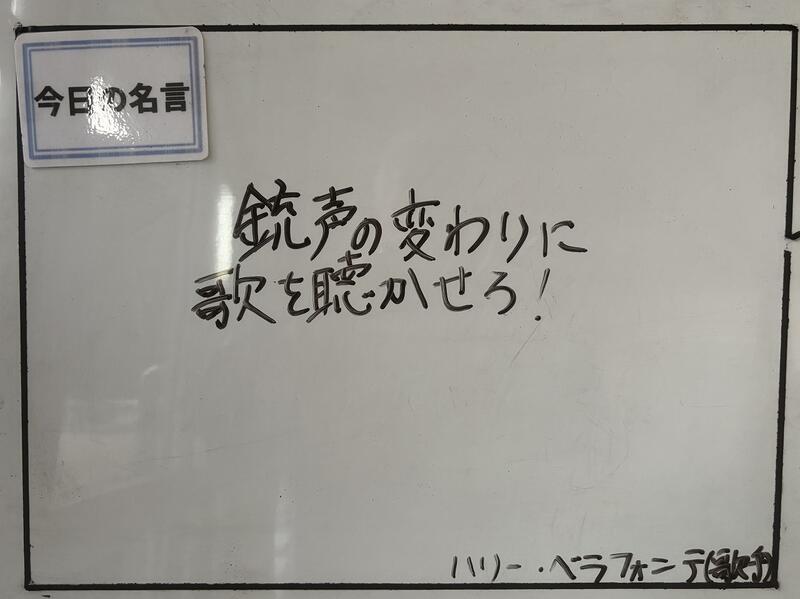 今日の名言
銃声の変わりに
歌を聴かせろ!
ハリー・ベラフォンテ(歌手)